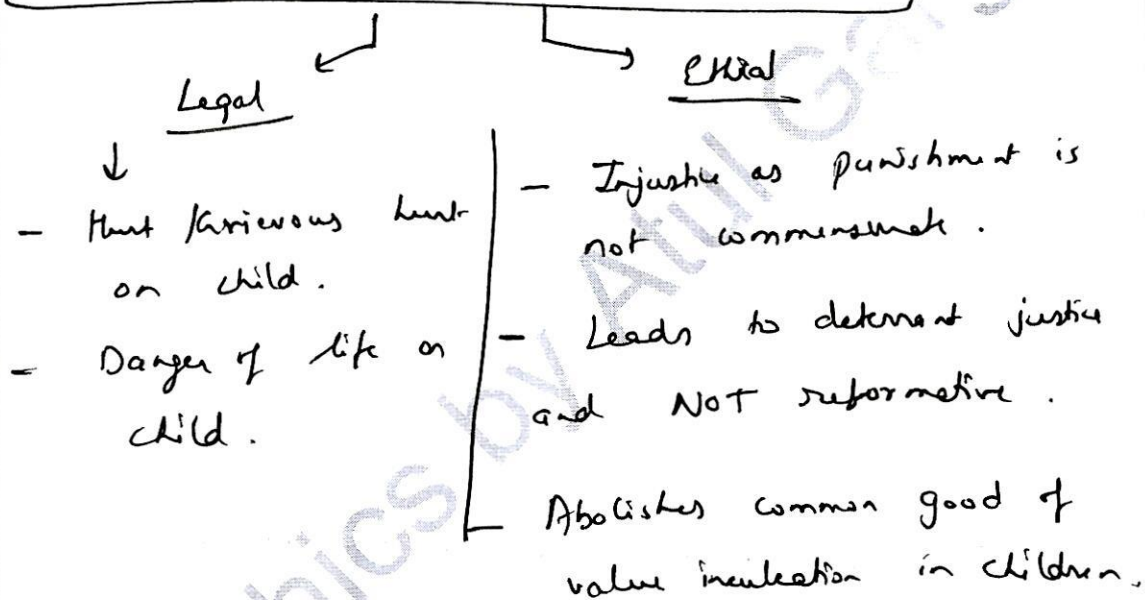 Legal
- Hurt / Grievous hurt
on child.
- Danger of life on
child.
Ethical
- Injustice as punishment is
not commensurate.
- Leads to deterrent justice
and NOT reformative.
- Abolishes common good of
value inculcation in children.
Ethics by Atul Garg